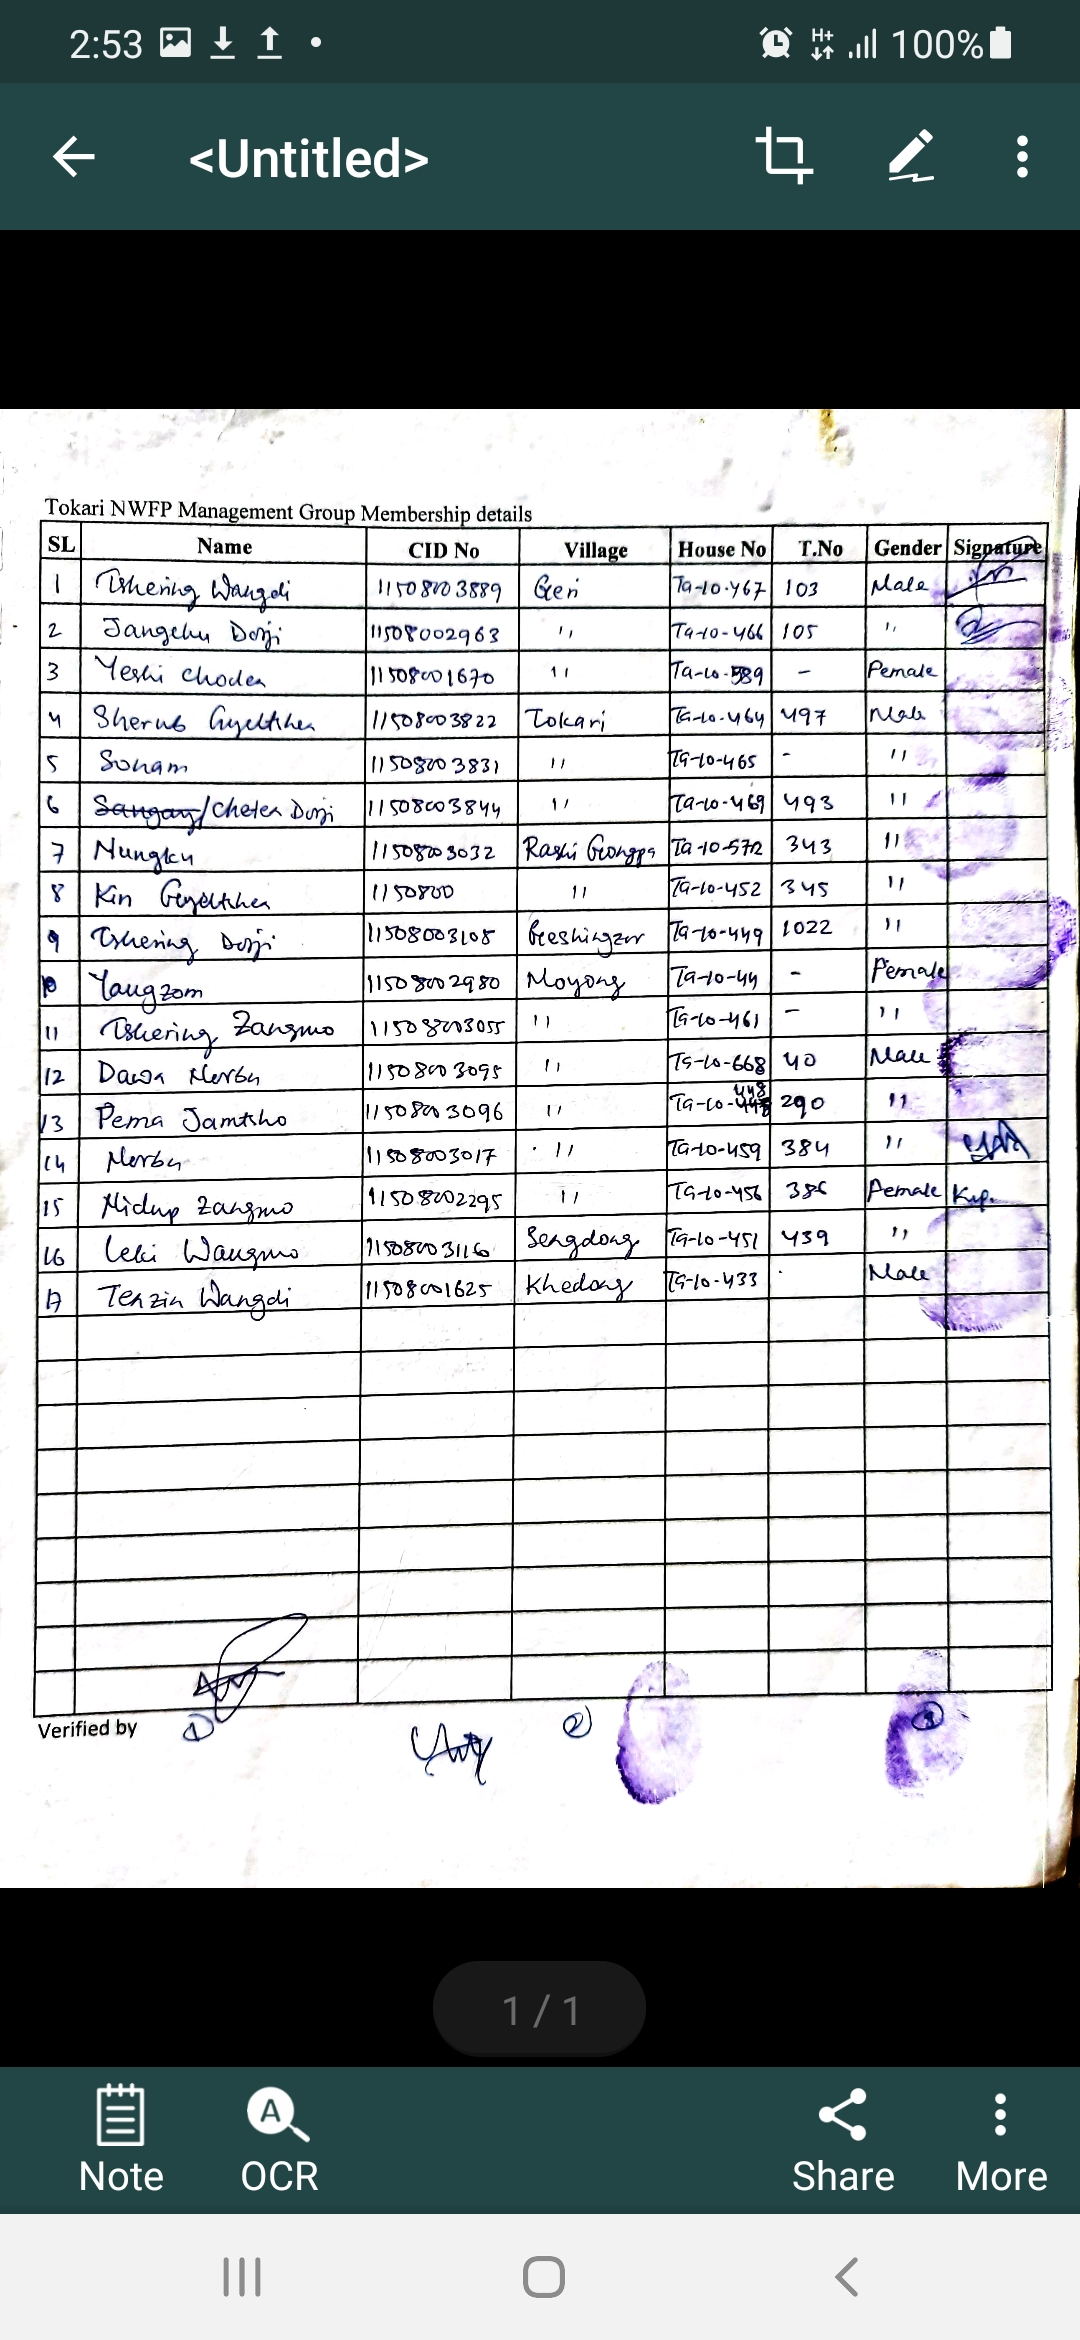 2:53 100%
<Untitled>
Tokari NWFP Management Group Membership details
SL Name CID No Village House No T.No Gender Signature
1 Tshering Wangdi 11508003889 Geri Ta-10-467 103 Male
2 Jangchu Dorji 11508002963 " Ta-10-466 105 "
3 Yeshi Choden 11508001670 " Ta-10-589 - Female
4 Sherub Gyeltshen 11508003822 Tokari Ta-10-464 497 Male
5 Sonam 11508003831 " Ta-10-465 - "
6 Sangay/Cheten Dorji 11508003844 " Ta-10-469 493 "
7 Nungku 11508003032 Rashi Ta-10-572 343 "
8 Kin Gyeltshen 1150800 " Ta-10-452 345 "
9 Tshering Dorji 11508003108 Ta-10-449 1022 "
10 Yangzom 11508002980 Moyong Ta-10-44 - Female
11 Tshering Zangmo 11508003055 " Ta-10-461 - "
12 Dawa Norbu 11508003095 " Ta-10-668 40 Male
13 Pema Jamtsho 11508003096 " Ta-10-448 290 "
14 Norbu 11508003017 " Ta-10-459 384 "
15 Nidup Zangmo 11508002295 " Ta-10-456 386 Female
16 Leki Wangmo 11508003116 Sengdong Ta-10-451 439 "
17 Tenzin Wangdi 11508001625 Khedong Ta-10-433 Male
Verified by 1) 2) 3)
1 / 1
Note OCR Share More